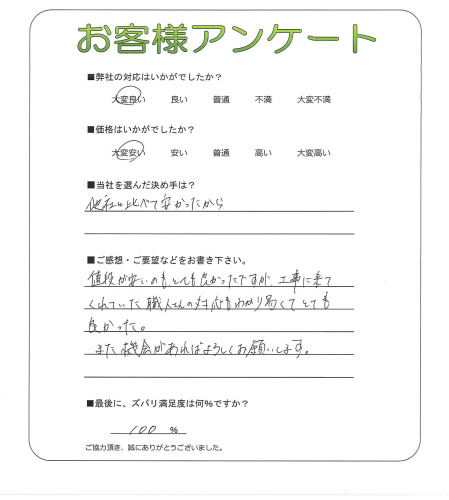 お客様アンケート
■弊社の対応はいかがでしたか？
大変良い 良い 普通 不満 大変不満
■価格はいかがでしたか？
大変安い 安い 普通 高い 大変高い
■当社を選んだ決め手は？
他社と比べて安かったから
■ご感想・ご要望などをお書き下さい。
値段が安いのもとても良かったですが、工事に来て
くれていた職人さんの対応もわかり易くてとても
良かった。
また機会があればよろしくお願いします。
■最後に、ズバリ満足度は何%ですか？
100 %
ご協力頂き、誠にありがとうございました。